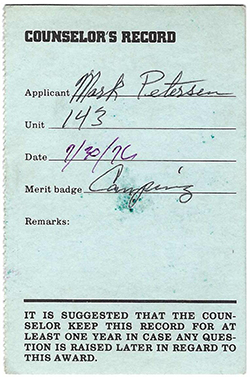 COUNSELOR'S RECORD
Applicant Mark Petersen
Unit 143
Date 7/30/76
Merit badge Camping
Remarks:
IT IS SUGGESTED THAT THE COUN-
SELOR KEEP THIS RECORD FOR AT
LEAST ONE YEAR IN CASE ANY QUES-
TION IS RAISED LATER IN REGARD TO
THIS AWARD.